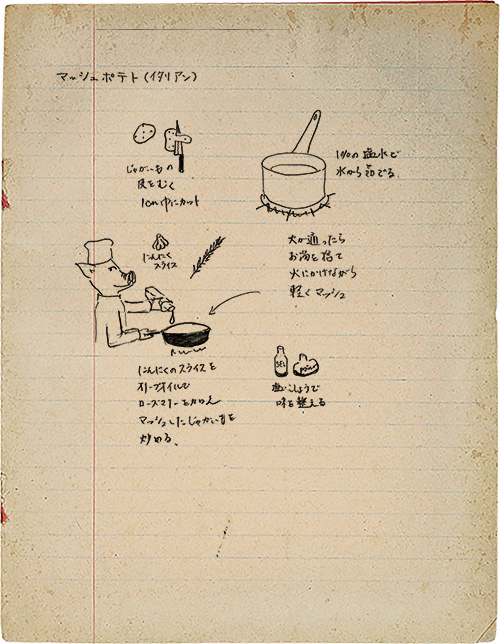 マッシュポテト(イタリアン)
じゃがいもの
皮をむく
1cm巾にカット
1%の塩水で
水から茹でる
火が通ったら
お湯を捨て
火にかけながら
軽くマッシュ
にんにく
スライス
にんにくのスライスを
オリーブオイルで
ローズマリーを加え
マッシュしたじゃがいもを
炒める。
SEL
塩こしょうで
味を整える